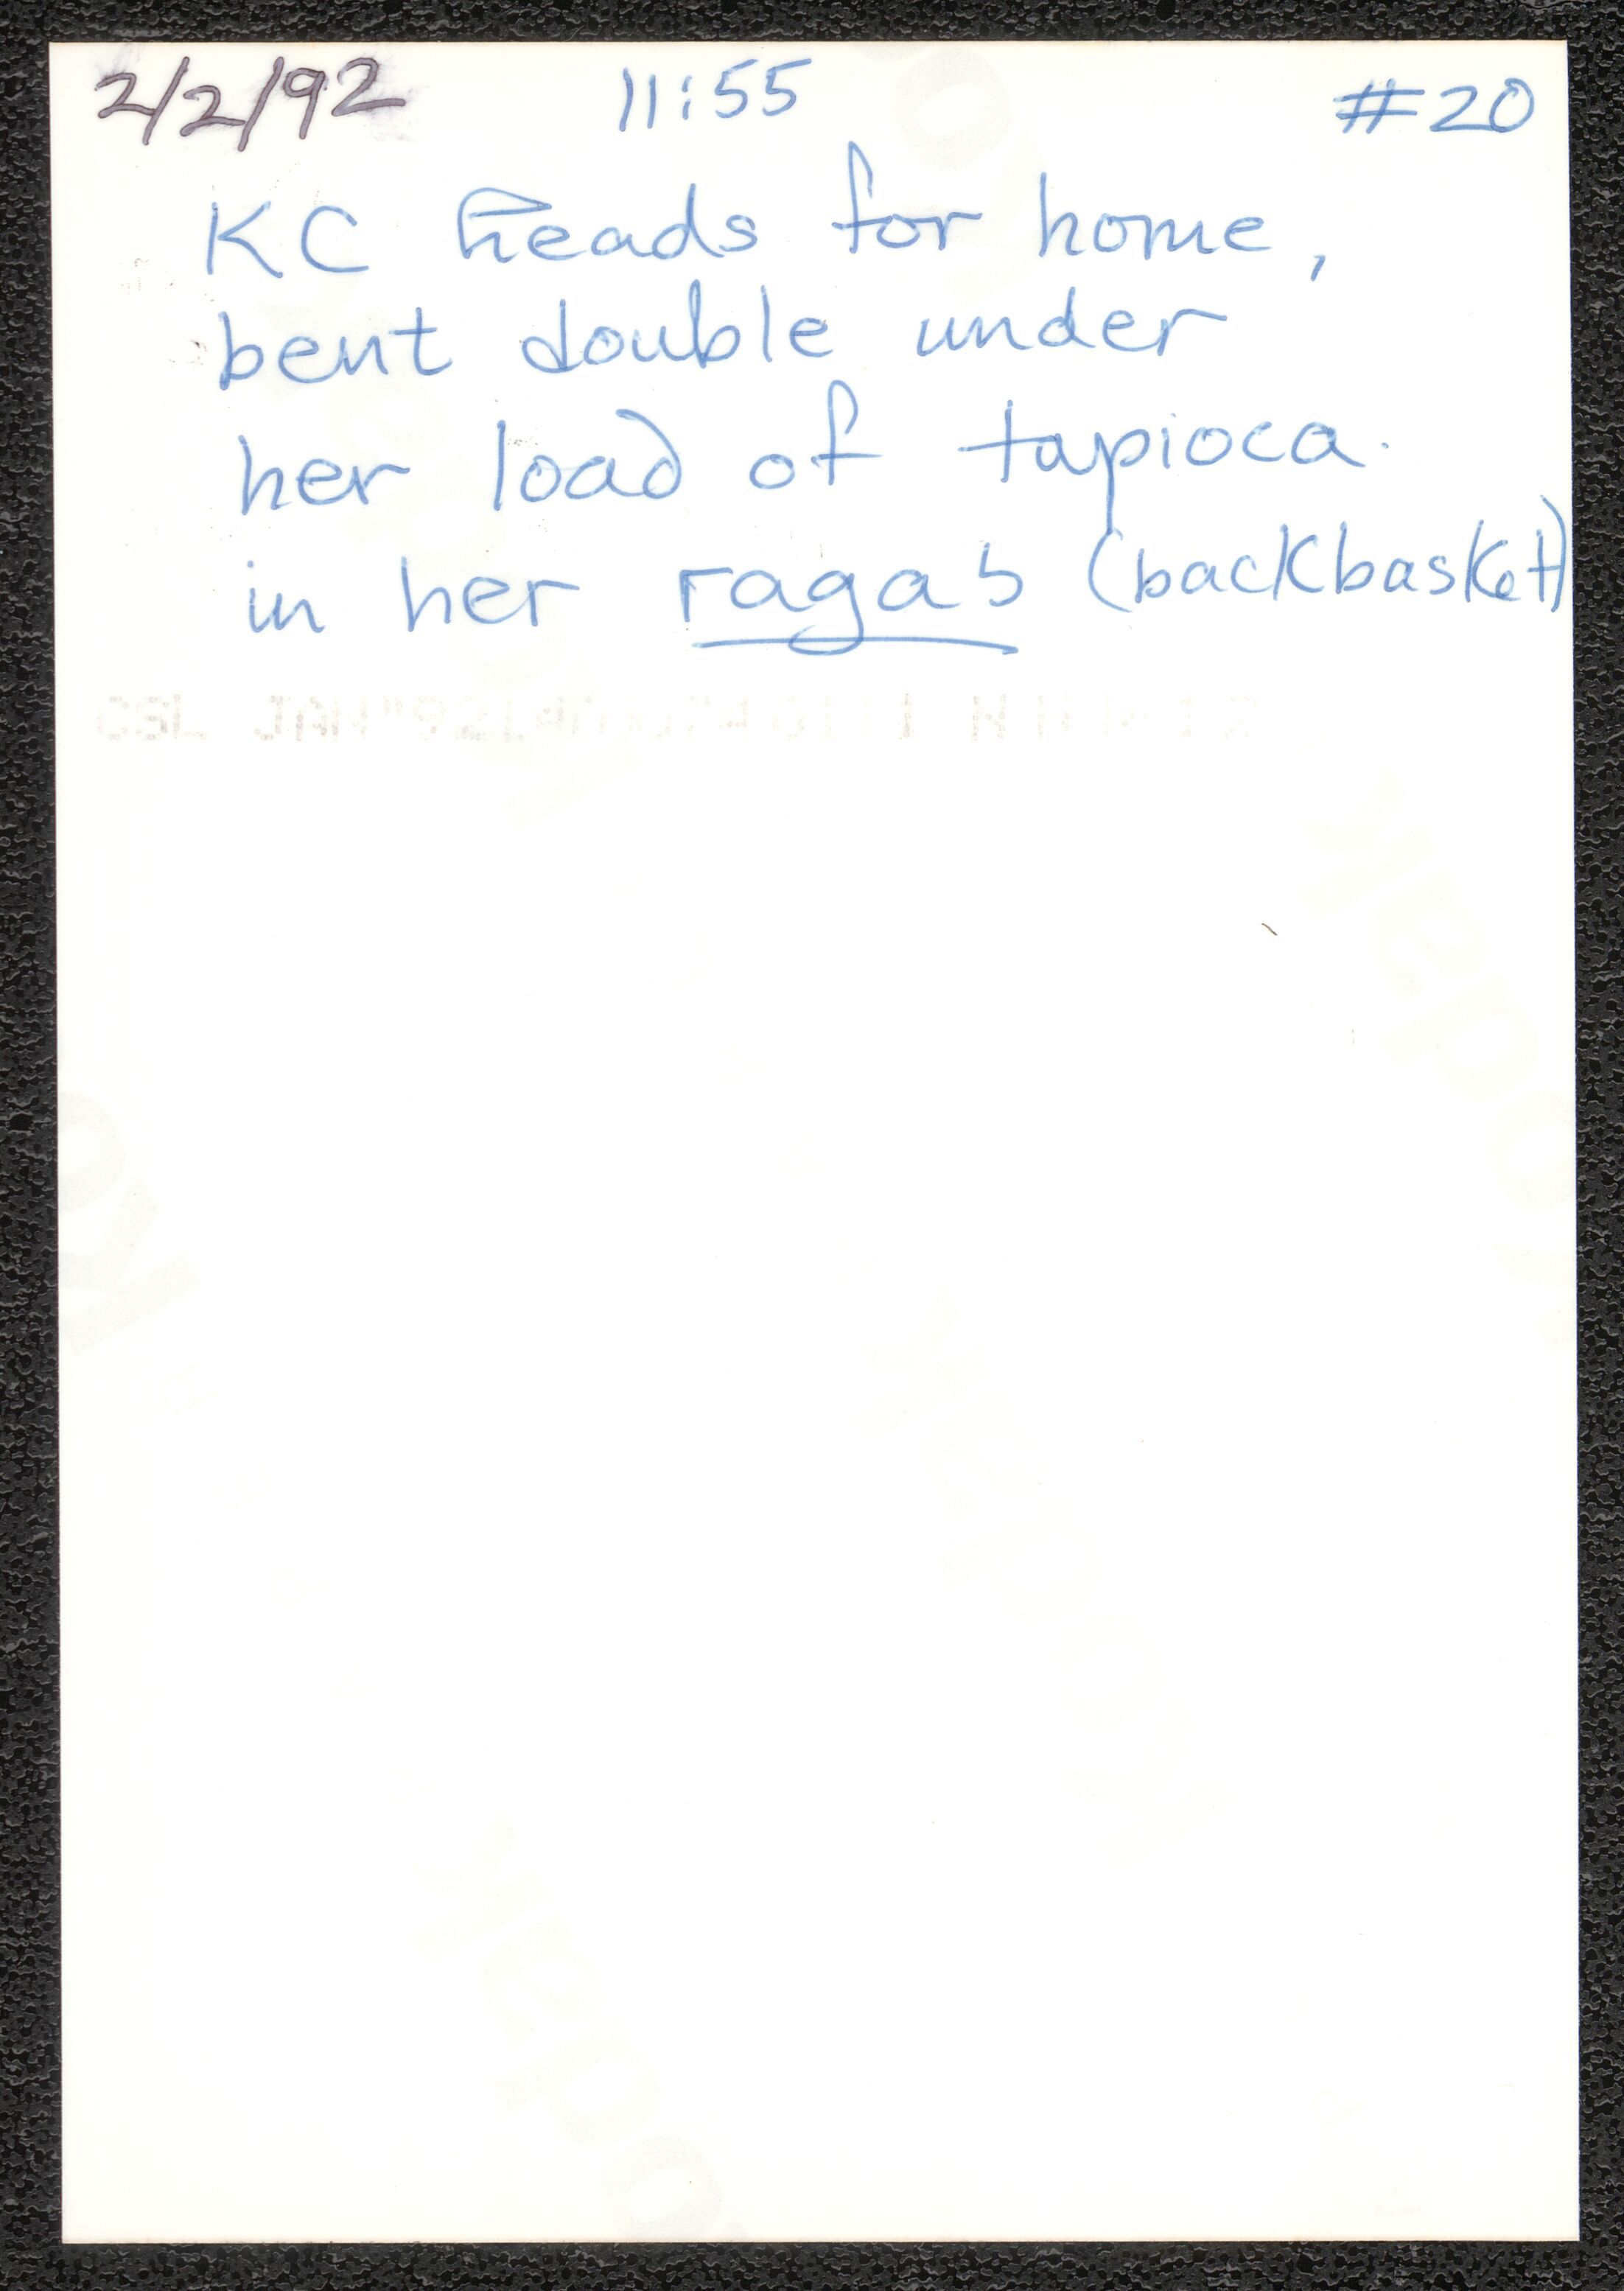 2/2/92 11:55 #20
KC heads for home,
bent double under
her load of tapioca.
in her ragas (backbasket)